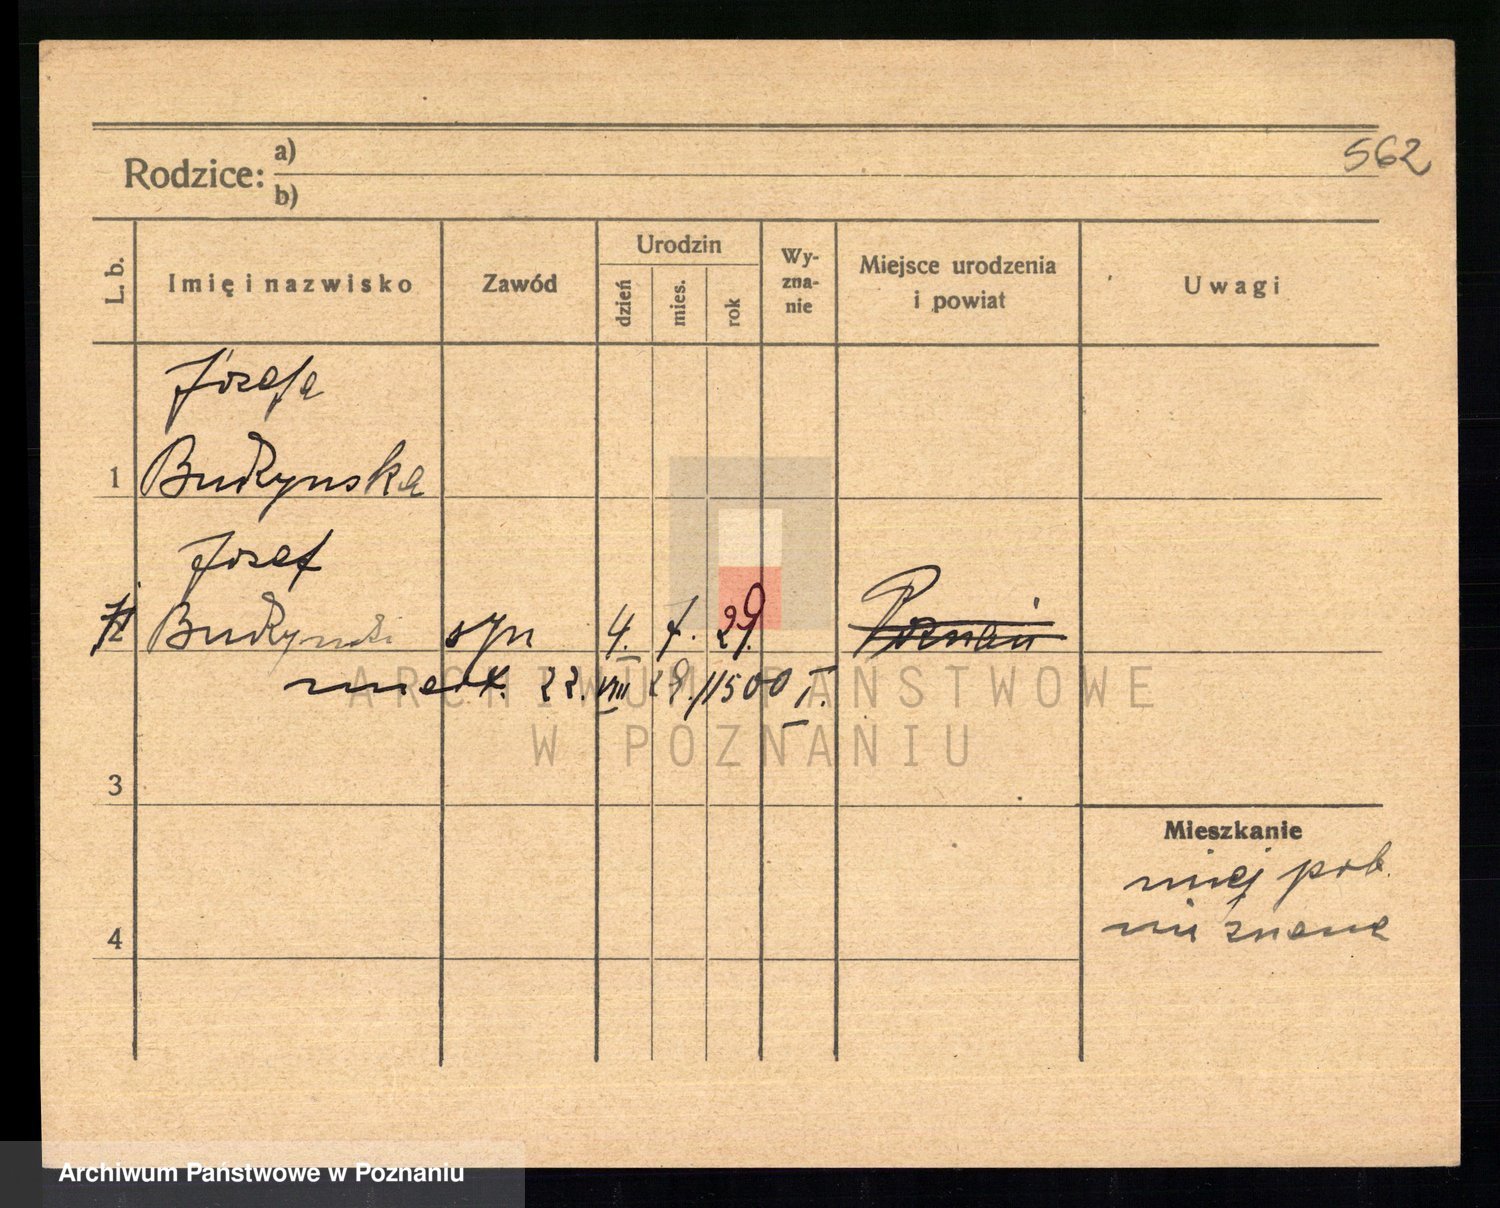 562
Rodzice: a)
b)
L. b.
Imię i nazwisko
Zawód
Urodzin
dzień
mies.
rok
Wy-
zna-
nie
Miejsce urodzenia
i powiat
Uwagi
Józefa
1 Budzynska
Józef
Budzynski syn 4. 7. 29. Poznań
22. VIII 29./1500 I.
3
Mieszkanie
miej pob.
nie znane
4
ARCHIWUM PAŃSTWOWE
W POZNANIU
Archiwum Państwowe w Poznaniu